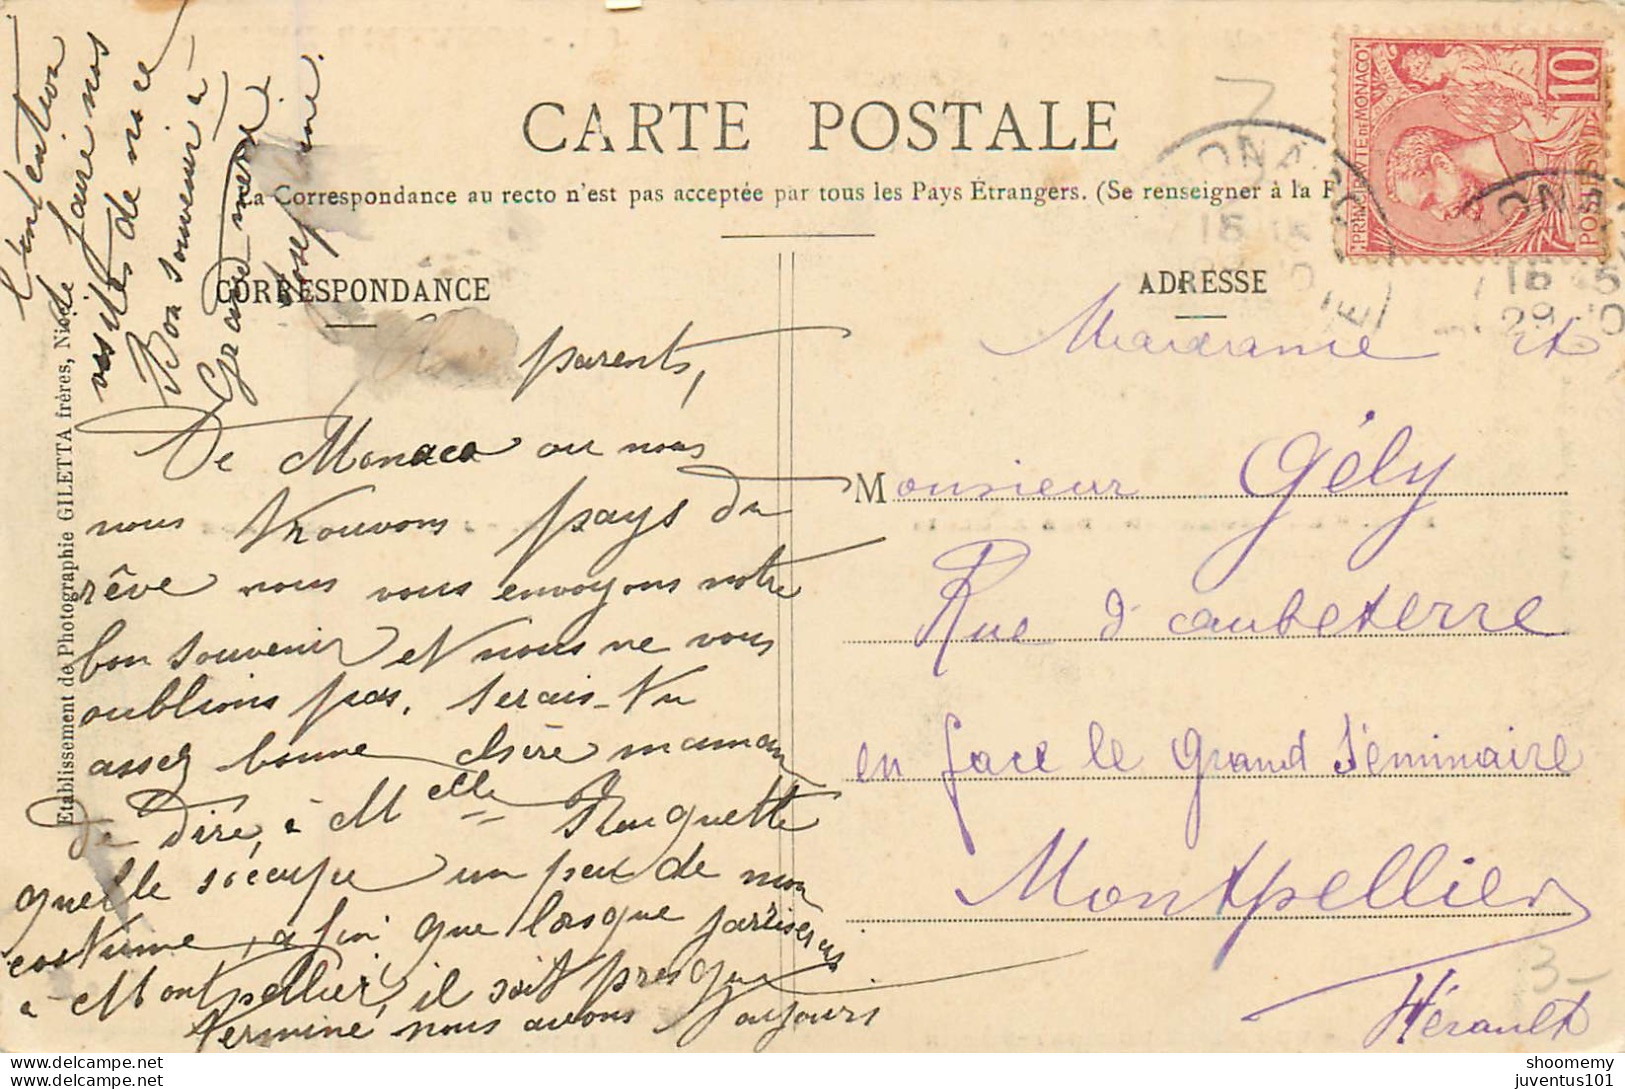 CARTE POSTALE
La Correspondance au recto n'est pas acceptée par tous les Pays Étrangers. (Se renseigner à la P
CORRESPONDANCE
ADRESSE
PRINCIPAUTE DE MONACO
10
POSTES
parents,
De Monaco ou nous
nous trouvons pays du
rêve nous vous envoyons notre
bon souvenir et nous ne vous
oublions pas. Serais-tu
assez bonne chère maman
de dire, à Melle Rouquette
quelle s'occupe un peu de mon
costume, afin que lorsque j'arriserais
à Montpellier, il soit presque
terminé, nous avons toujours
l'intention
de faire nos
visites de nice
Bon souvenir à
Grand mère.
Josephine.
Madame et
Monsieur Gély
Rue d'aubeterre
en face le grand Séminaire
Montpellier
Hérault
3-
Etablissement de Photographie GILETTA frères, Nice
shoomemy
juventus101